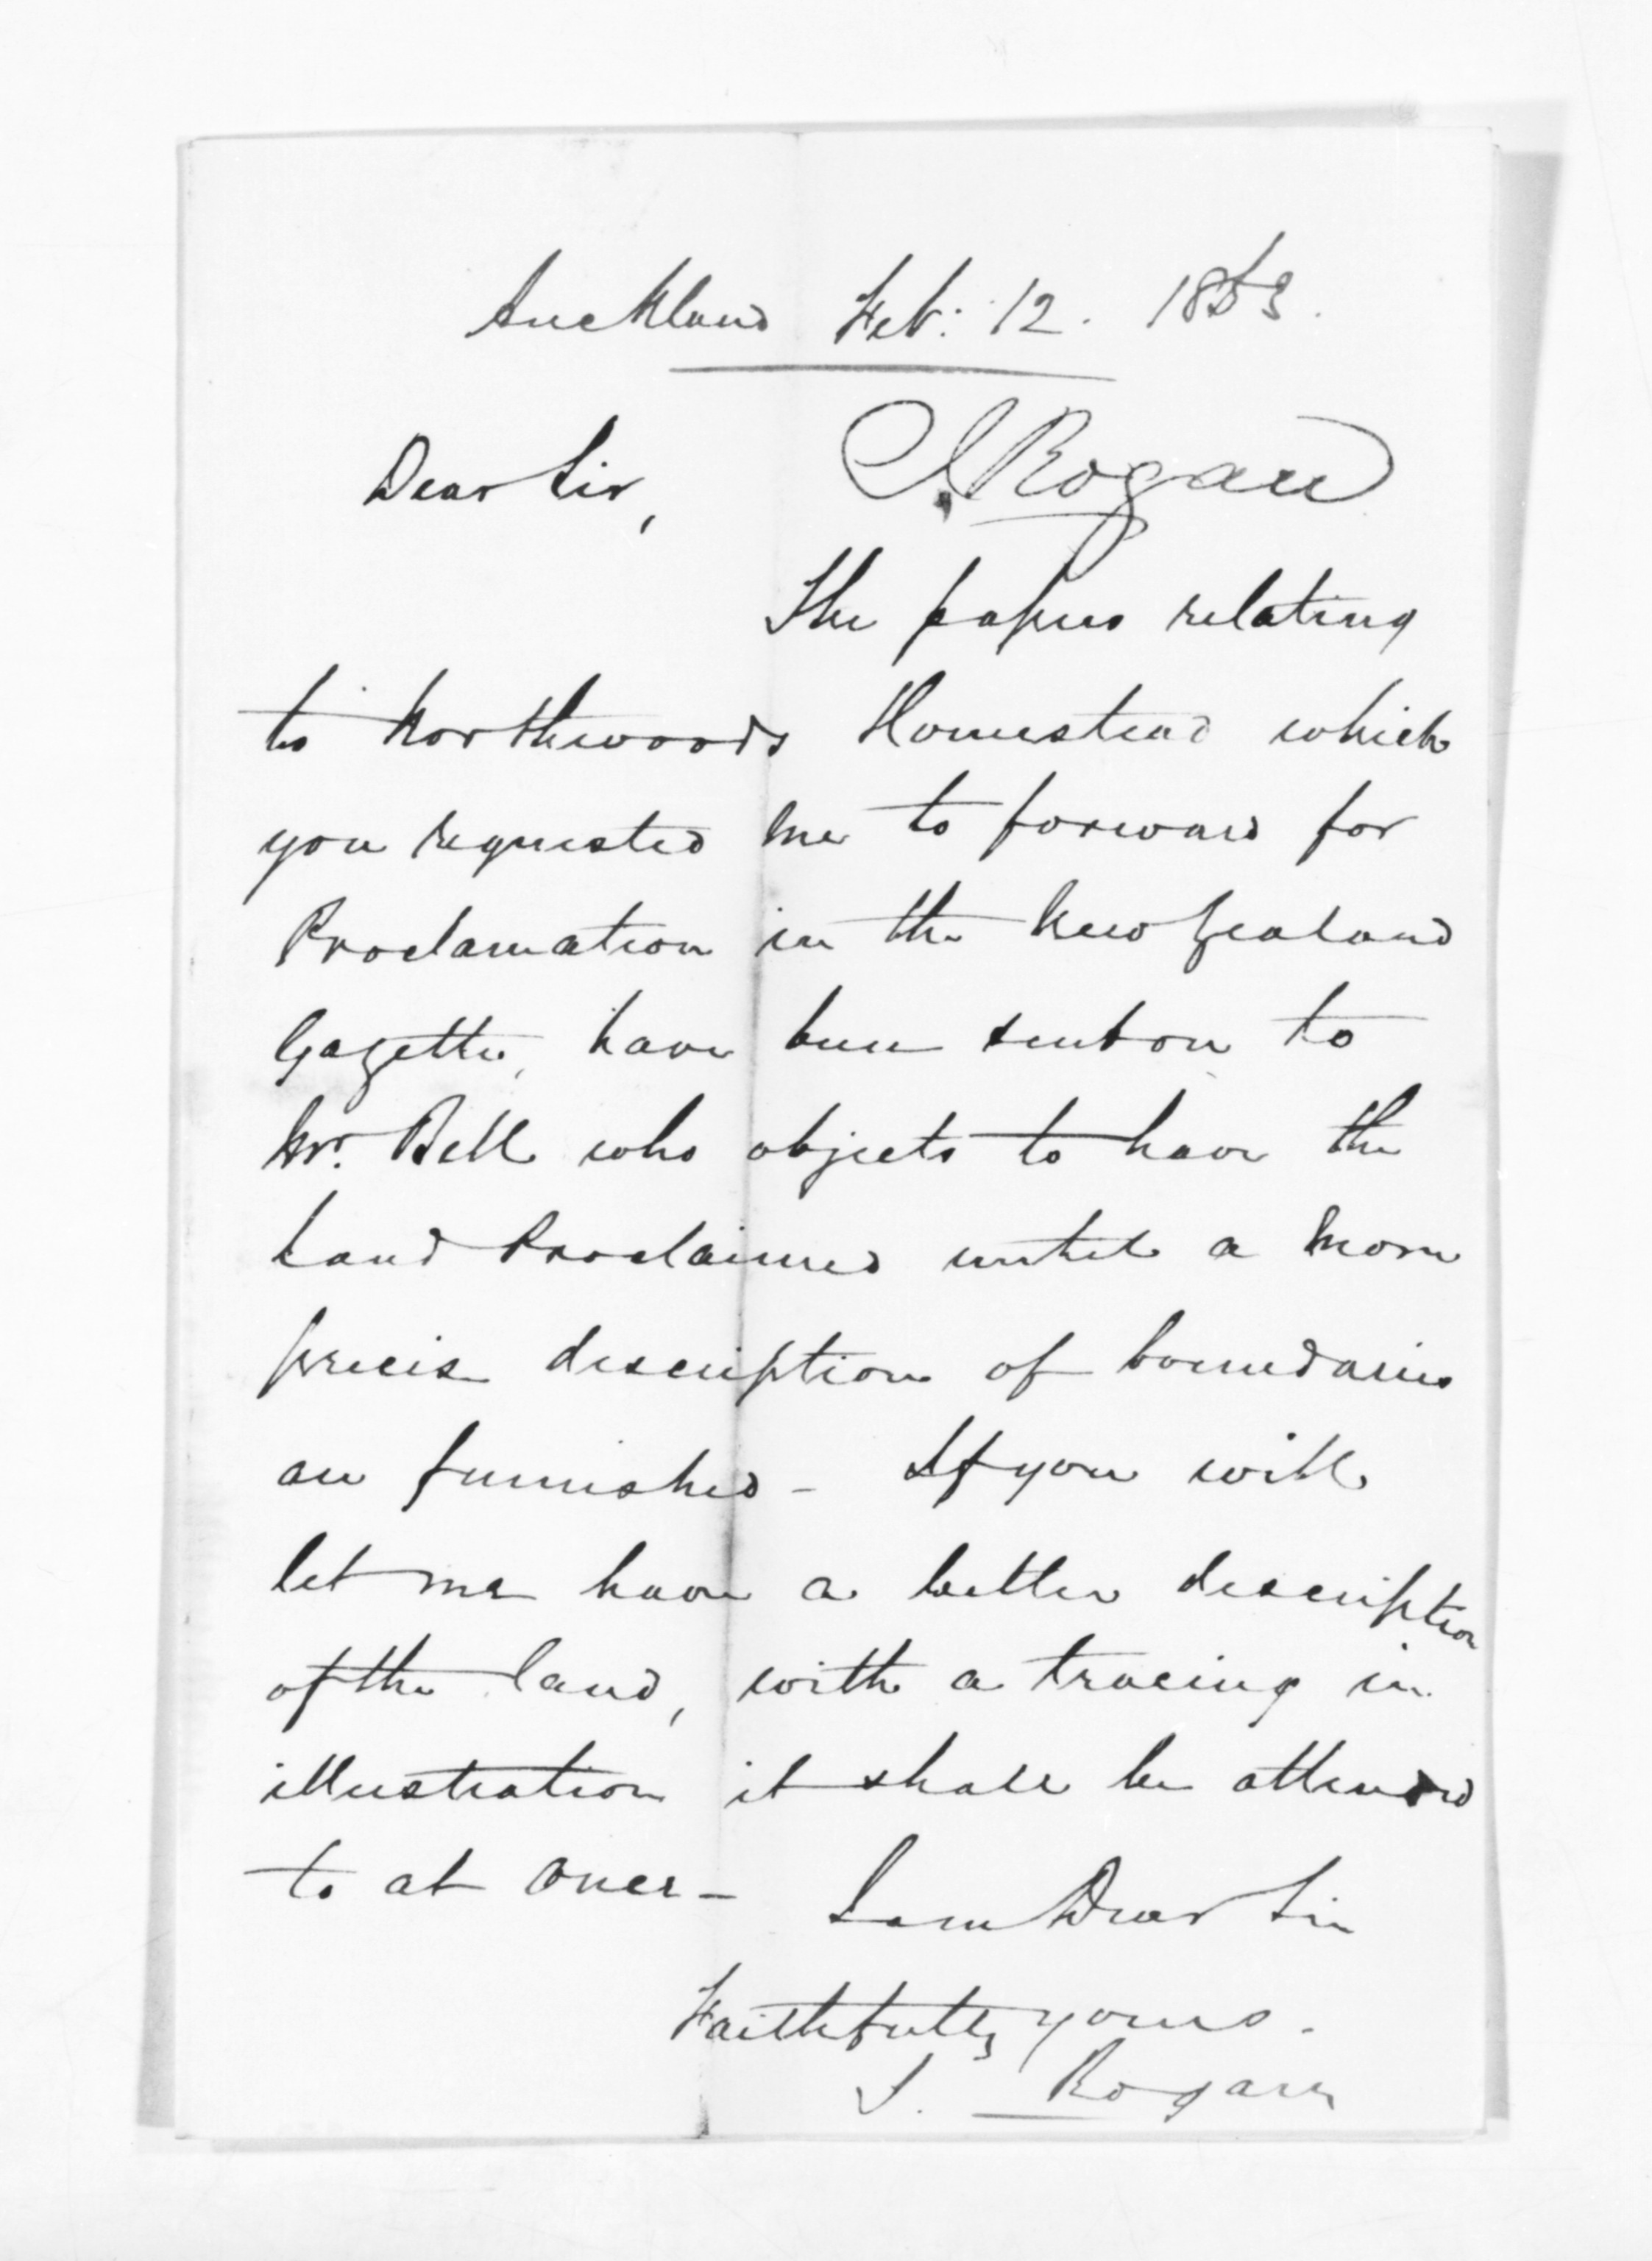 Auckland Feb: 12. 1863.
J Rogan
Dear Sir,
The papers relating
to Northwoods Homestead which
you requested me to forward for
Proclamation in the New Zealand
Gazette, have been sent on to
Mr. Bell who objects to have the
land Proclaimed until a more
precise description of boundaries
are furnished - If you will
let me have a better description
of the land, with a tracing in
illustration it shall be attended
to at once -
I am Dear Sir
Faithfully yours.
J. Rogan